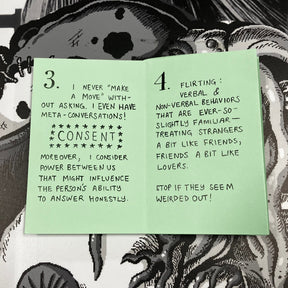 3.
I NEVER "MAKE
A MOVE" WITH-
OUT ASKING. I EVEN HAVE
META-CONVERSATIONS!
CONSENT
MOREOVER, I CONSIDER
POWER BETWEEN US
THAT MIGHT INFLUENCE
THE PERSON'S ABILITY
TO ANSWER HONESTLY.
4.
FLIRTING:
VERBAL &
NON-VERBAL BEHAVIORS
THAT ARE EVER-SO-
SLIGHTLY FAMILIAR—
TREATING STRANGERS
A BIT LIKE FRIENDS,
FRIENDS A BIT LIKE
LOVERS.
STOP IF THEY SEEM
WEIRDED OUT!